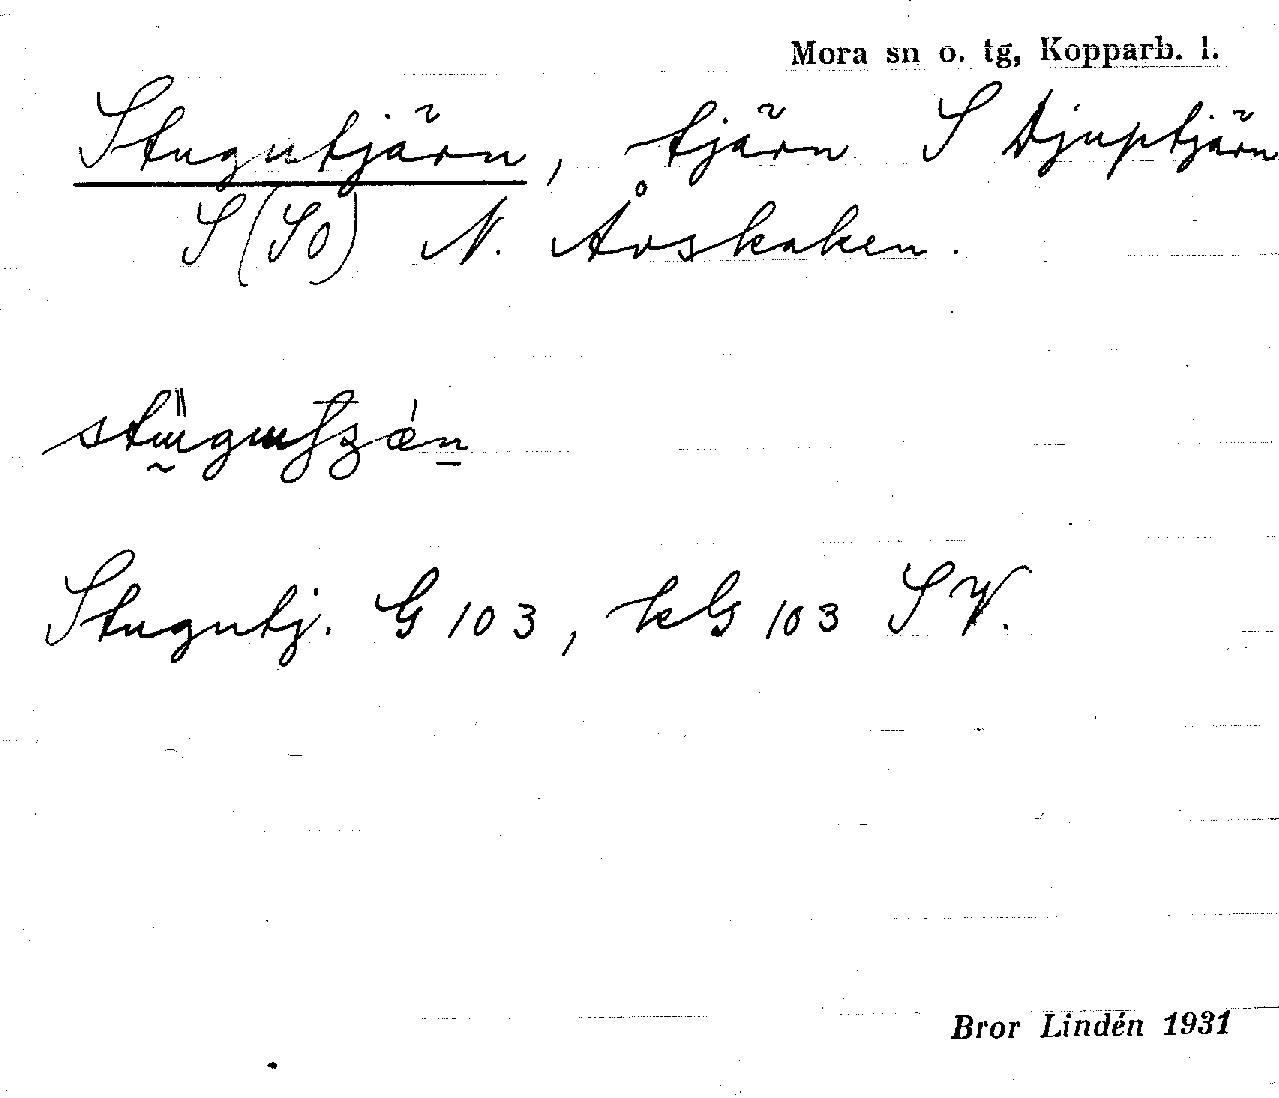 Mora sn o. tg, Kopparb. l.
Stugutjärn, tjärn S Djuptjärn
S (SO) N. Åvskaken.
Stugutj. G 103, kG 103 SV.
Bror Lindén 1931